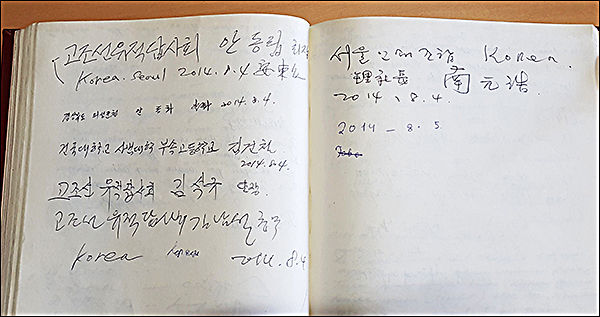 고조선유적답사회 안동립 회장
Korea. Seoul 2014.8.4 安東立
2014.8.4.
건국대학교 사범대학 부속고등학교 김건철
2014.8.4.
고조선 유적답사회 김석규 단장
고조선 유적답사회 김남설
Korea 2014.8.4
서울 Korea.
理事長 南元浩
2014. 8. 4.
2014 - 8. 5